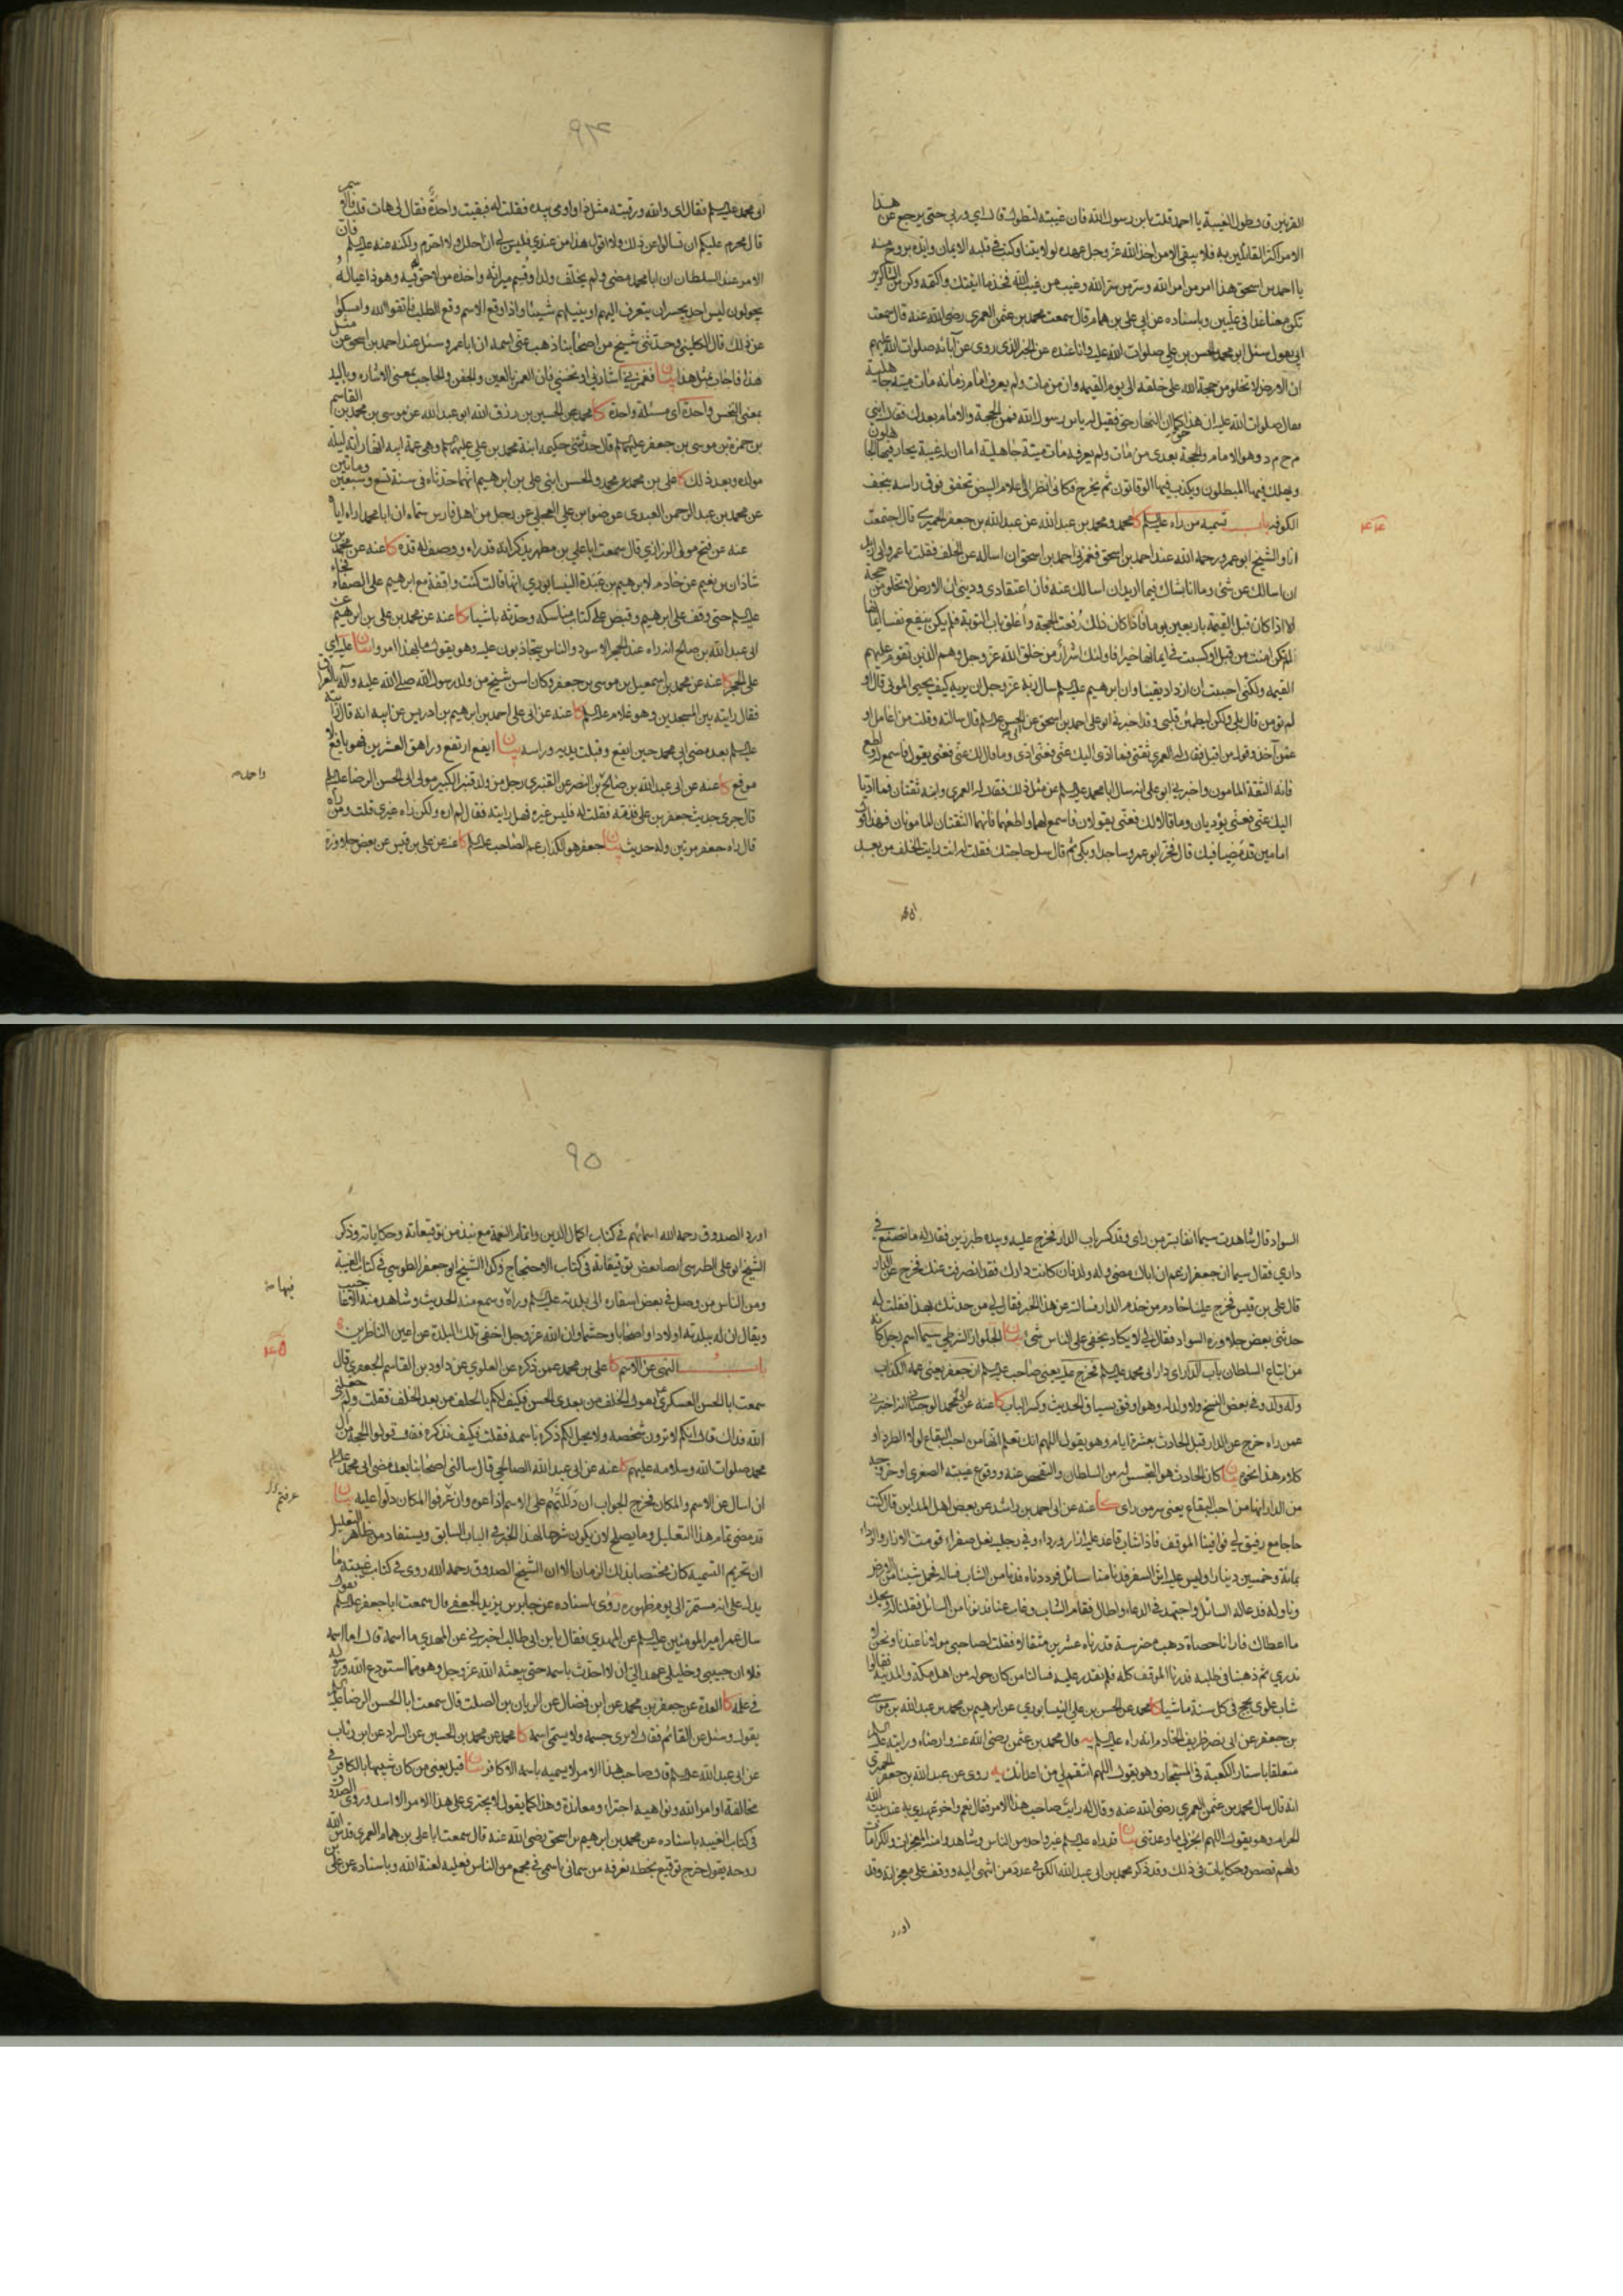 القرنين قال وطول الغيبة يا احمد قلت يا بن رسول الله فان غيبته لتطول قال اي وربي حتى يرجع عن هذا
الامر اكثر القائلين به فلا يبقى الا من اخذ الله عز وجل عهده لولايتنا وكتب في قلبه الايمان وايده بروح منه
يا احمد بن اسحق هذا امر من امر الله وسر من سر الله وغيب من غيب الله فخذ ما اتيتك واكتمه وكن من الشاكرين
تكن معنا غدا في عليين وباسناده عن ابي علي بن همام قال سمعت محمد بن عثمن العمري رضي الله عنه قال سمعت
ابي يقول سئل ابو محمد الحسن بن علي صلوات الله عليه وانا عنده عن الخبر الذي روي عن آبائه صلوات الله عليهم
ان الارض لا تخلو من حجة الله على خلقه الى يوم القيمة وان من مات ولم يعرف امام زمانه مات ميتة جاهلية
فقال صلوات الله عليه ان هذا حق كما ان النهار حق فقيل له يا بن رسول الله فمن الحجة والامام بعدك فقال ابني
م ح م د وهو الامام والحجة بعدي من مات ولم يعرفه مات ميتة جاهلية اما ان له غيبة يحار فيها الجاهلون
ويهلك فيها المبطلون ويكذب فيها الوقاتون ثم يخرج فكاني انظر الى الاعلام البيض تخفق فوق راسه بنجف
الكوفة باب تسمية من راه عليه السلم كا محمد ومحمد بن عبد الله عن عبد الله بن جعفر الحميري قال اجتمعت
انا والشيخ ابو عمرو رحمه الله عند احمد بن اسحق فغمزني احمد بن اسحق ان اساله عن الخلف فقلت يا عمرو اني اريد
ان اسالك عن شئ وما انا بشاك فيما اريد ان اسالك عنه فان اعتقادي وديني ان الارض لا تخلو من حجة
الا اذا كان قبل القيمة باربعين يوما فاذا كان ذلك رفعت الحجة واغلق باب التوبة فلم يكن ينفع نفسا ايمانها
لم تكن امنت من قبل او كسبت في ايمانها خيرا فاولئك اشرار من خلق الله عز وجل وهم الذين تقوم عليهم
القيمة ولكني احببت ان ازداد يقينا وان ابرهيم عليه السلم سال ربه عز وجل ان يريه كيف يحيي الموتى قال او
لم تؤمن قال بلى ولكن ليطمئن قلبي وقد اخبرني ابو علي احمد بن اسحق عن ابي الحسن عليه السلم قال سالته وقلت من اعامل او
عمن آخذ وقول من اقبل فقال له العمري ثقتي فما ادى اليك عني فعني ادى وما قال لك عني فعني يقول فاسمع له واطع
فانه الثقة المامون واخبرني ابو علي انه سال ابا محمد عليه السلم عن مثل ذلك فقال له العمري وابنه ثقتان فما اديا
اليك عني فعني يؤديان وما قالا لك فعني يقولان فاسمع لهما واطعهما فانهما الثقتان المامونان فهذا قول
امامين قد مضيا فيك قال فخر ابو عمرو ساجدا وبكى ثم قال سل حاجتك فقلت له انت رايت الخلف من بعد
ابي محمد
٤٤
٩٤
ابي محمد عليه السلم فقال اي والله ورقبته مثل ذا واومى بيده فقلت له فبقيت واحدة فقال لي هات قلت فالاسم
قال محرم عليكم ان تسالوا عن ذلك ولا اقول هذا من عندي فليس لي ان احلل ولا احرم ولكنه عنه عليه السلم فان
الامر عند السلطان ان ابا محمد مضى ولم يخلف ولدا وقسم ميراثه واخذه من لا حق له فيه وهو ذا عياله
يجولون ليس احد يجسر ان يتعرف اليهم او ينيلهم شيئا واذا وقع الاسم وقع الطلب فاتقوا الله وامسكوا
عن ذلك قال الكليني وحدثني شيخ من اصحابنا ذهب عني اسمه ان ابا عمرو سئل عند احمد بن اسحق عن مثل
هذا فاجاب بمثل هذا بيان فغمزني اشار لي او نخسني فان الغمز بالعين والجفن والحاجب بمعنى الاشارة وباليد
بمعنى النخس واحدة اي مسئلة واحدة كا محمد عن الحسين بن رزق الله ابو عبد الله عن موسى بن محمد بن القاسم
بن حمزة بن موسى بن جعفر عليهما السلم قال حدثتني حكيمة ابنة محمد بن علي عليهما السلم وهي عمة ابيه انها راته ليلة
مولده وبعد ذلك كا علي بن محمد عن محمد والحسن ابني علي بن ابرهيم انهما حدثاه في سنة تسع وسبعين وماتين
عن محمد بن عبد الرحمن العبدي عن ضوء بن علي العجلي عن رجل من اهل فارس سماه ان ابا محمد اراه اياه
عنه عن فتح مولى الزراري قال سمعت ابا علي بن مطهر يذكر انه قد راه ووصف له قده كا عنه عن محمد بن
شاذان بن نعيم عن خادم لابرهيم بن عبدة النيسابوري انها قالت كنت واقفة مع ابرهيم على الصفا فجاء
عليه السلم حتى وقف على ابرهيم وقبض على كتاب مناسكه وحدثه باشياء كا عنه عن محمد بن علي بن ابرهيم عن
ابي عبد الله بن صالح انه راه عند الحجر الاسود والناس يتجاذبون عليه وهو يقول ما بهذا امروا بيان عليه اي
على الحجر كا عنه عن محمد بن اسمعيل بن موسى بن جعفر وكان اسن شيخ من ولد رسول الله صلى الله عليه وآله بالعراق
فقال رايته بين المسجدين وهو غلام عليه السلم كا عنه عن ابي علي احمد بن ابرهيم بن ادريس عن ابيه انه قال رايته
عليه السلم بعد مضي ابي محمد حين ايفع وقبلت يديه وراسه بيان ايفع ارتفع وراهق العشرين فهو يافع لا
موفع كا عنه عن ابي عبد الله بن صالح بن النضر عن القنبري رجل من ولد قنبر الكبير مولى ابي الحسن الرضا عليه السلم
قال جرى حديث جعفر بن علي فذمه فقلت له فليس غيره فهل رايته فقال لم اره ولكن راه غيري قلت ومن راه
قال راه جعفر مرتين وله حديث بيان جعفر هو الكذاب عم الصاحب عليه السلم كا عنه عن علي بن قيس عن بعض جلاوزة
السواد قال شاهدت سيما انفا بسر من راى وقد كسر باب الدار فخرج عليه وبيده طبرزين فقال له ما تصنع في
داري فقال سيما ان جعفرا زعم ان اباك مضى ولا ولد له فان كانت دارك فقد انصرفت عنك فخرج عن الدار
قال علي بن قيس فخرج علينا خادم من خدم الدار فسالته عن هذا الخبر فقال لي من حدثك بهذا فقلت له
حدثني بعض جلاوزة السواد فقال لي لا يكاد يخفى على الناس شئ بيان الجلواز الشرطي سيما اسم رجل كان
من اتباع السلطان باب الدار اي دار ابي محمد عليه السلم فخرج عليه يعني صاحب عليه السلم ان جعفر يعني عمه الكذاب
وله ولد وفي بعض النسخ ولا ولد له وهو اوفق بسياق الحديث وكسر الباب كا عنه عن ابي محمد الوجناني انه اخبرني
عمن راه خرج عن الدار قبل الحادث بعشرة ايام وهو يقول اللهم انك تعلم انها من احب البقاع لولا الطرد او
كلام هذا نحوه بيان كان الحادث هو التجسس له من السلطان والتفحص عنه ووقوع غيبته الصغرى او خروجه
من الدار انها من احب البقاع يعني سر من راى كا عنه عن ابي احمد بن راشد عن بعض اهل المداين قال كنت
حاجا مع رفيق لي فوافينا الموقف فاذا شاب قاعد عليه ازار ورداء وفي رجليه نعل صفراء قومت الازار والرداء
بمائة وخمسين دينارا وليس عليه اثر السفر فدنا منا سائل فرددناه فدنا من الشاب فساله فحمل شيئا من الارض
وناوله فدعا له السائل واجتهد في الدعاء واطال فقام الشاب وغاب عنا فدنونا من السائل فقلنا له ويحك
ما اعطاك فارانا حصاة ذهب مضرسة قدرناها عشرين مثقالا فقلت لصاحبي مولانا عندنا ونحن لا
ندري ثم ذهبنا في طلبه فدرنا الموقف كله فلم نقدر عليه فسالنا من كان حوله من اهل مكة والمدينة فقالوا
شاب علوي يحج في كل سنة ماشيا كا محمد عن الحسن بن علي النيسابوري عن ابرهيم بن محمد بن عبد الله بن موسى
بن جعفر عن ابي نصر ظريف الخادم انه راه عليه السلم يه قال محمد بن عثمن رضي الله عنه وارضاه ورايته عليه السلم
متعلقا باستار الكعبة في المستجار وهو يقول اللهم انتقم لي من اعدائك يه روى عن عبد الله بن جعفر الحميري
انه قال سال محمد بن عثمن العمري رضي الله عنه وقال له رايت صاحب هذا الامر فقال نعم واخر عهدي به عند بيت الله
الحرام وهو يقول اللهم انجز لي ما وعدتني بيان قد راه عليه السلم غير واحد من الناس وشاهدوا منه المعجزات والكرامات
ولهم قصص وحكايات في ذلك وقد ذكر محمد بن ابي عبد الله الكوفي عدد من انتهى اليه ووقف على معجزاته وقد
اورد
٩٥
اورد الصدوق رحمه الله اسمائهم في كتاب اكمال الدين واتمام النعمة مع نبذ من توقيعاته وحكاياته وذكر
الشيخ ابو علي الطبرسي ايضا بعض توقيعاته في كتاب الاحتجاج وكذا الشيخ ابو جعفر الطوسي في كتاب الغيبة
ومن الناس من وصل في بعض اسفاره الى بلدته عليه السلم وراه وسمع منه الحديث وشاهد منه الاعاجيب
ويقال ان له ببلدته اولادا واصحابا وحشما وان الله عز وجل اخفى تلك البلدة عن اعين الناظرين
٤٥
باب النهي عن الاسم كا علي بن محمد عمن ذكره عن العلوي عن داود بن القاسم الجعفري قال
سمعت ابا الحسن العسكري يقول الخلف من بعدي الحسن فكيف لكم بالخلف من بعد الخلف فقلت ولم جعلني
الله فداك قال انكم لا ترون شخصه ولا يحل لكم ذكره باسمه فقلت فكيف نذكره فقال قولوا الحجة من ال
محمد صلوات الله وسلامه عليهم كا عنه عن ابي عبد الله الصالحي قال سالني اصحابنا بعد مضي ابي محمد عليه السلم
ان اسال عن الاسم والمكان فخرج الجواب ان دللتهم على الاسم اذاعوه وان عرفوا المكان دلوا عليه بيان
قد مضى تمام هذا التعليل وما يصلح لان يكون شرحا لهذا الخبر في الباب السابق ويستفاد من ظاهر التعليل
ان تحريم التسمية كان مختصا بذلك الزمان الا ان الشيخ الصدوق رحمه الله روى في كتاب غيبته ما
يدل على انه مستمر الى يوم ظهوره روى باسناده عن جابر بن يزيد الجعفي قال سمعت ابا جعفر عليه السلم يقول
سال عمر امير المؤمنين عليه السلم عن المهدي فقال يا بن ابي طالب اخبرني عن المهدي ما اسمه قال اما اسمه
فلا ان حبيبي وخليلي عهد الي ان لا احدث باسمه حتى يبعثه الله عز وجل وهو مما استودع الله رسوله
في علمه كا العدة عن جعفر بن محمد عن ابن فضال عن الريان بن الصلت قال سمعت ابا الحسن الرضا عليه السلم
يقول وسئل عن القائم فقال لا يرى جسمه ولا يسمى اسمه كا محمد عن محمد بن الحسين عن السراد عن ابن رئاب
عن ابي عبد الله عليه السلم قال صاحب هذا الامر لا يسميه باسمه الا كافر بيان قيل يعني من كان شبيها بالكافر في
مخالفة اوامر الله ونواهيه اجتراء ومعاندة وهذا كما يقول لا يجترى على هذا الامر الا اسد وروى الصدوق
في كتاب الغيبة باسناده عن محمد بن ابرهيم بن اسحق رضي الله عنه قال سمعت ابا علي بن همام العمري قدس الله
روحه يقول خرج توقيع بخطه نعرفه من سماني باسمي في مجمع من الناس فعليه لعنة الله وباسناده عن علي بن